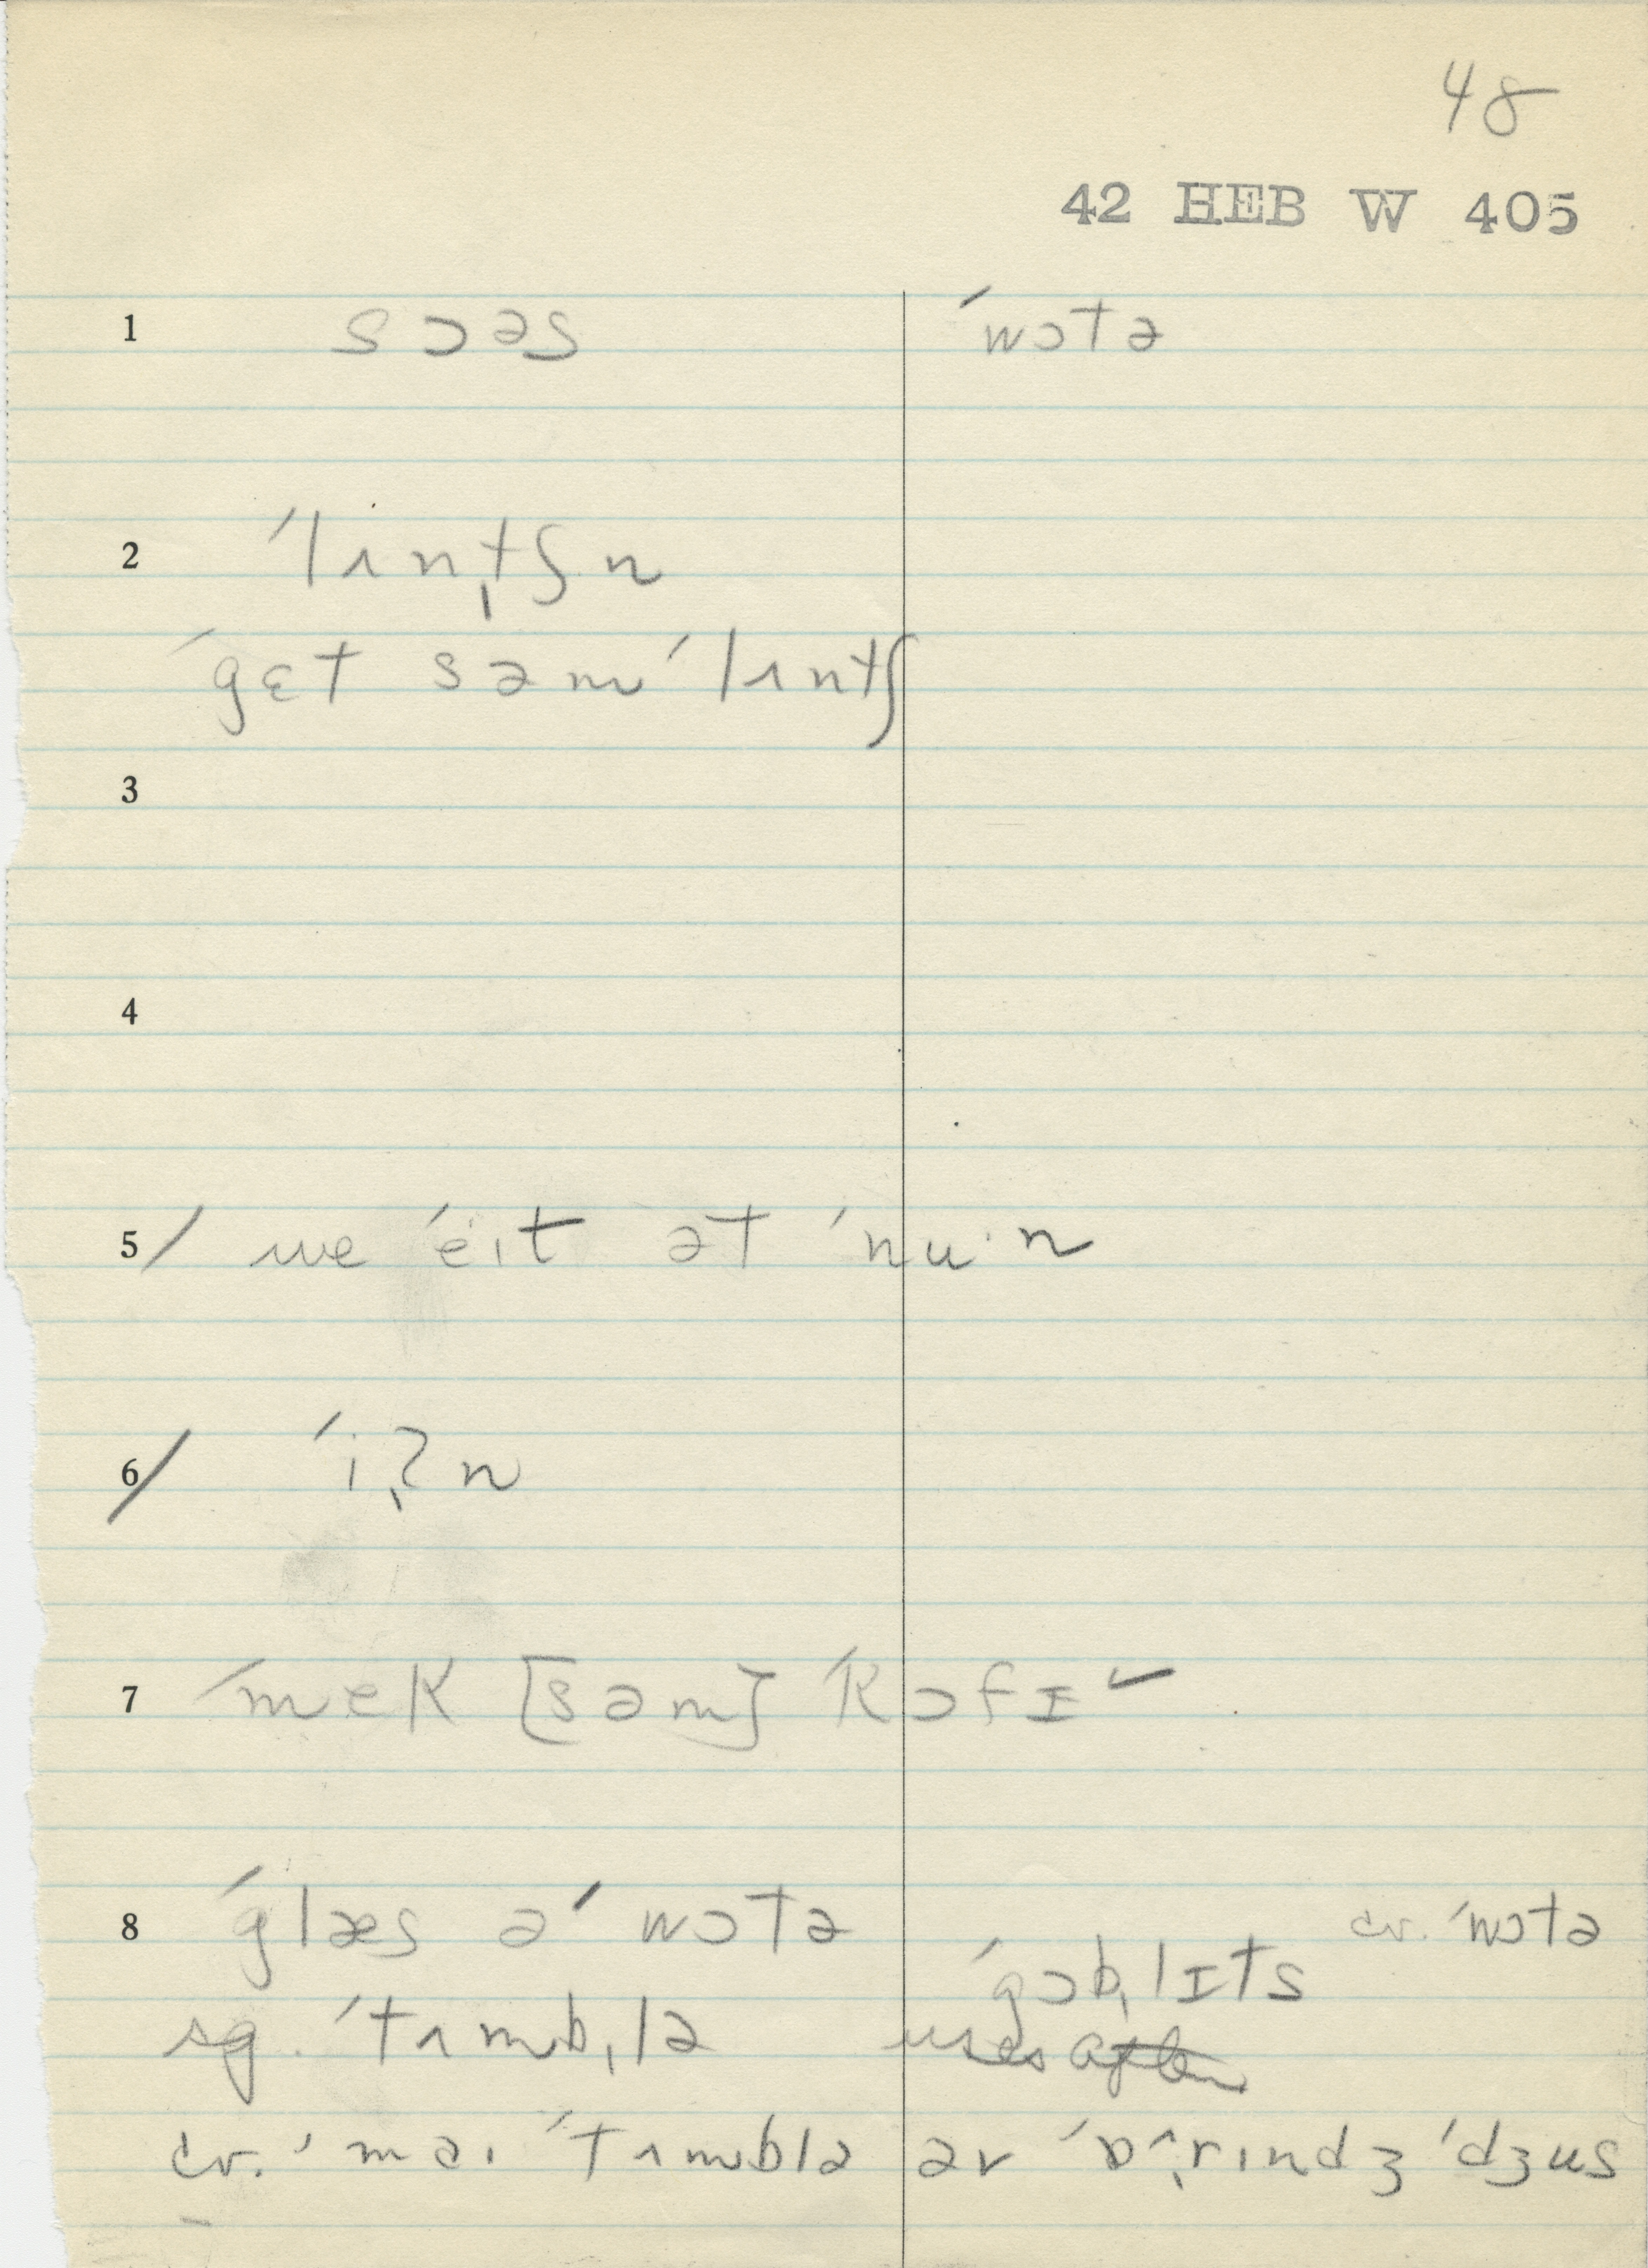 48
42 HEB W 405
1 sɔəs ˈwɔtə
2 ˈlʌnˌtʃn
ˈgɛt səm ˈlʌntʃ
3
4
5/ we ˈeɪt ət ˈnu·n
6/ ˈiˌʔn
7 ˈmek [səm] ˈkɔfɪ ✓
8 ˈglæs ə ˈwɔtə cv. ˈwɔtə
ˈgɔbˌlɪts
sg. ˈtʌmbˌlə uses
cv. ˈmaɪ ˈtʌmblə əv ˈɒˌrɪndʒ ˈdʒus